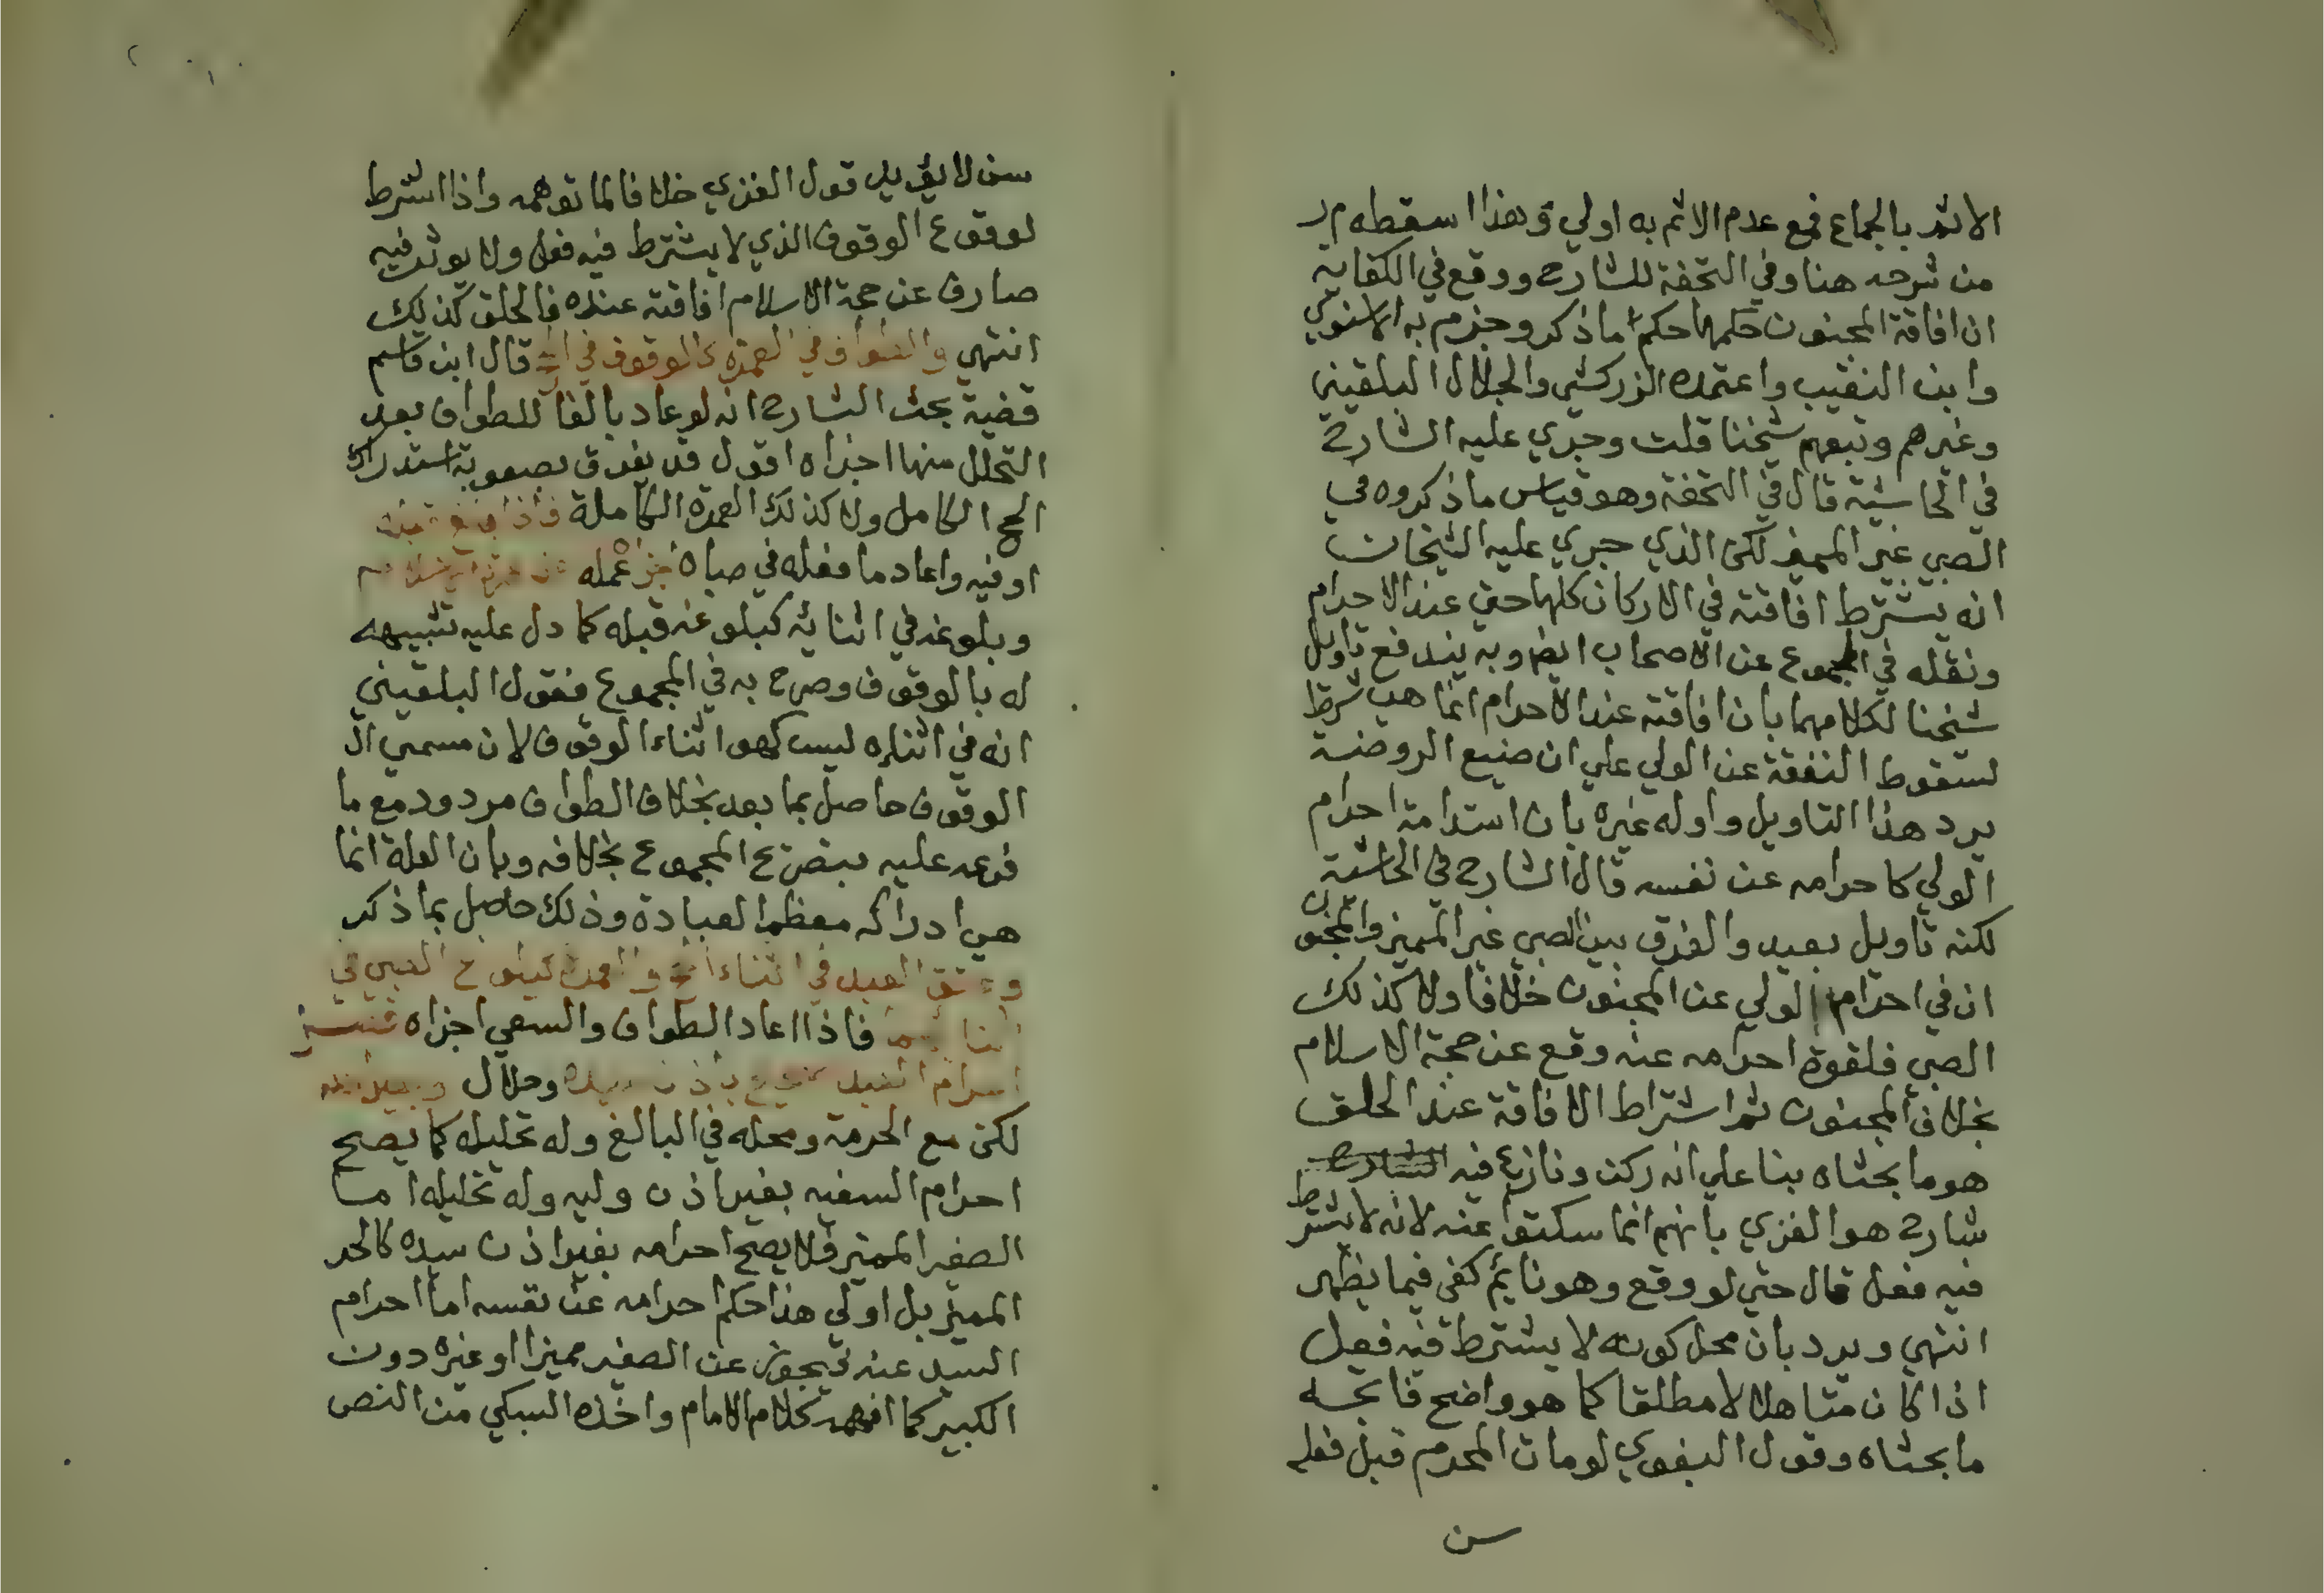 الاثم بالجماع فمع عدم الاثم به اولي وهذا اسقطه م ر
من شرحه هنا وفي التحفة للشارح ووقع في الكفاية
ان افاقة المجنون حكمها حكم ما ذكر وجزم به الاسنوي
وابن النقيب واعتمده الزركشي والجلال البلقيني
وغيرهم وتبعهم شيخنا قلت وجري عليه الشارح
في الحاشية قال في التحفة وهو قياس ما ذكروه في
الصبي غير المميز لكن الذي جري عليه الشيخان
انه يشترط افاقته في الاركان كلها حتي عند الاحرام
ونقله في المجموع عن الاصحاب ايضا وبه يندفع تاويل
شيخنا لكلامهما بان افاقته عند الاحرام انما هي شرط
لسقوط النفقة عن الولي علي ان صنيع الروضة
يرد هذا التاويل واوله غيره بان استدامة احرام
الولي كاحرامه عن نفسه قال الشارح في الحاشية
لكنه تاويل بعيد والفرق بين الصبي غير المميز والمجنون
ان في احرام الولي عن المجنون خلافا ولا كذلك
الصبي فلقوة احرامه عنه وقع عن حجة الاسلام
بخلاف المجنون ثم اشتراط الافاقة عند الحلق
هو ما بحثاه بنا علي انه ركن ونازع فيه الشارح
شارح هو الغزي بانهم انما سكتوا عنه لانه لا يشترط
فيه فعل قال حتي لو وقع وهو نايم كفي فيما يظهر
انتهي ويرد بان محل كونه لا يشترط فيه فعل
اذا كان متاهلا لا مطلقا كما هو واضح فاتجه
ما بحثاه وقول البغوي لو مات المحرم قبل فعله
سن
سن لا يؤيد قول الغزي خلافا لما توهمه واذا اشترط
لوقوع الوقوف الذي لا يشترط فيه فعل ولا يوثر فيه
صارف عن حجة الاسلام افاقته عنده فالحلق كذلك
انتهي والطواف في العمرة كالوقوف في الحج قال ابن قاسم
قضية بحث الشارح انه لو عاد بالغا للطواف بعد
التحلل منها اجزاه اقول قد يفرق بصعوبة استدراك
الحج الكامل ولا كذلك العمرة الكاملة فاذا بلغ قبله
او فيه واعاد ما فعله في صباه اجزا عمله عن عمرة الاسلام
وبلوغه في اثنائه كبلوغه قبله كما دل عليه تشبيهه
له بالوقوف وصرح به في المجموع فقول البلقيني
انه في اثنايه ليس كهو اثناء الوقوف لان مسمي ال
الوقوف حاصل بما بعد بخلاف الطواف مردود مع ما
فرعه عليه بتصريح المجموع بخلافه وبان العلة انما
هي ادراكه معظم العبادة وذلك حاصل بما ذكر
وعتق العبد في اثناء الحج والعمرة كبلوغ الصبي في
اثنائهما فاذا اعاد الطواف والسعي اجزاه
احرام العبد باذن سيده وحلال وبغير اذنه
لكن مع الحرمة ومحله في البالغ وله تحليله كما يصح
احرام السفيه بغير اذن وليه وله تحليله اما
الصغير المميز فلا يصح احرامه بغير اذن سيده كالحر
المميز بل اولي هذا حكم احرامه عن نفسه اما احرام
السيد عنه فيجوز عن الصغير مميزا او غيره دون
الكبير كما افهمه كلام الامام واخذه السبكي من النص